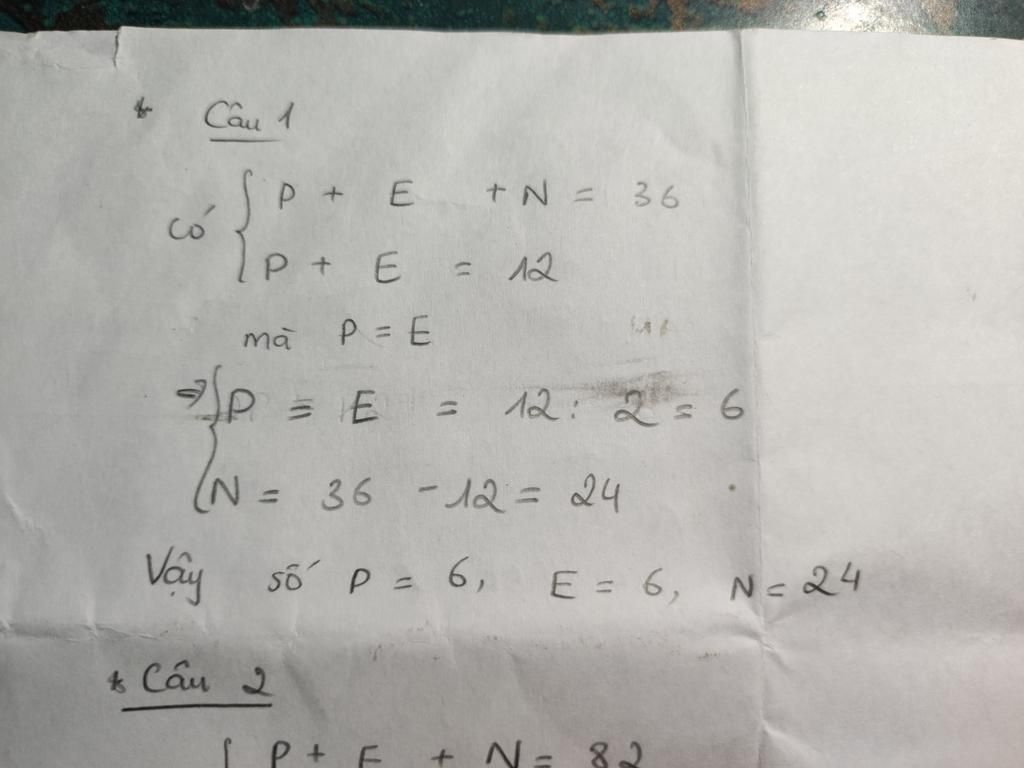 * Câu 1
có { P + E + N = 36
P + E = 12
mà P = E
=> { P = E = 12 : 2 = 6
N = 36 - 12 = 24
Vậy số P = 6, E = 6, N = 24
* Câu 2
{ P + E + N = 82